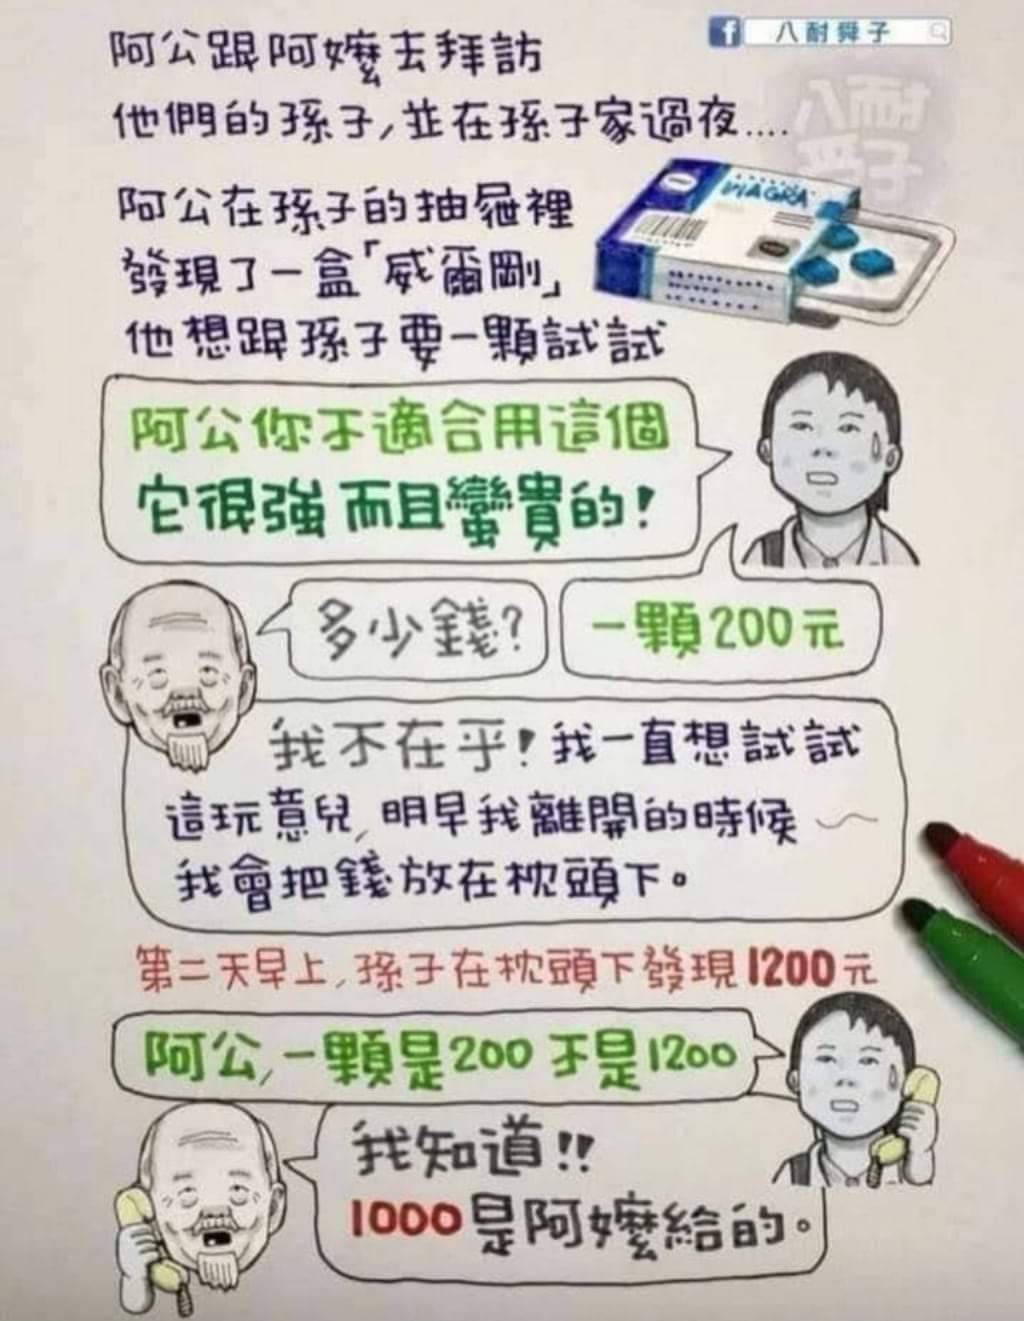 八耐舜子
八耐
舜子
阿公跟阿嬤去拜訪
他們的孫子,並在孫子家過夜....
VIAGRA
阿公在孫子的抽屜裡
發現了一盒「威爾剛」
他想跟孫子要一顆試試
阿公你不適合用這個
它很強而且蠻貴的!
多少錢?
一顆200元
我不在乎!我一直想試試
這玩意兒,明早我離開的時候~
我會把錢放在枕頭下。
第二天早上,孫子在枕頭下發現1200元
阿公,一顆是200不是1200
我知道!!
1000是阿嬤給的。